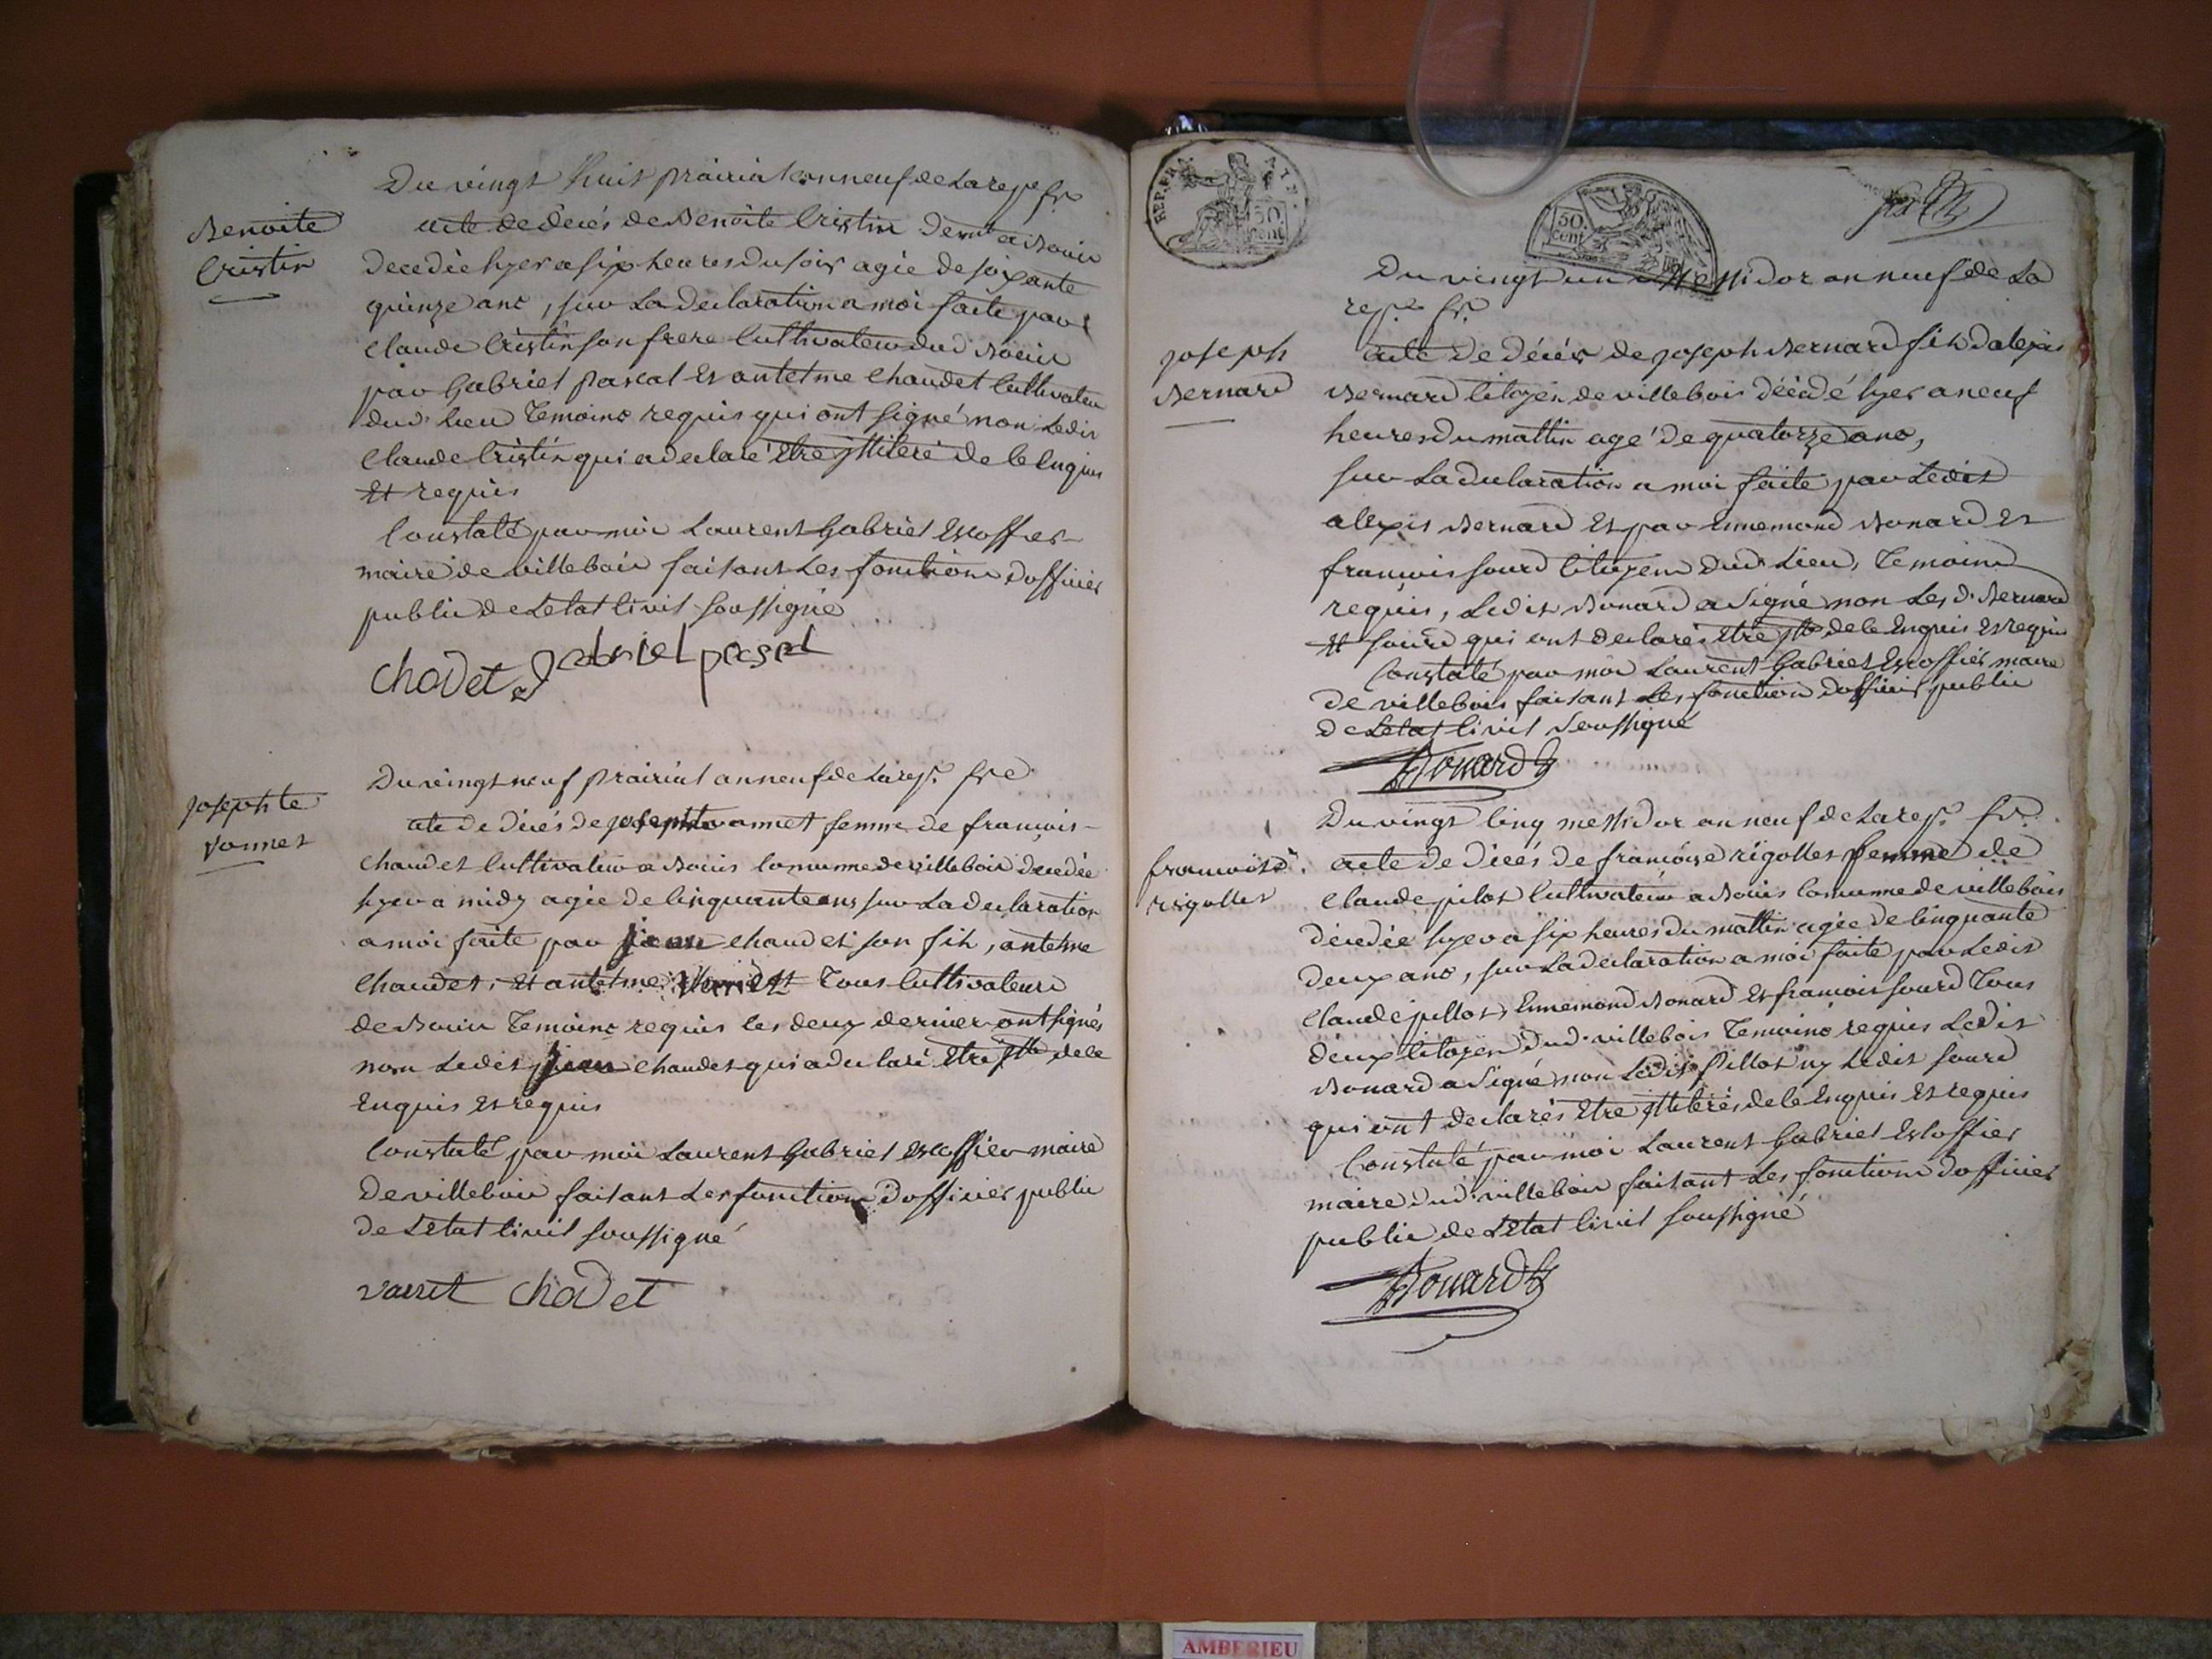 Du vingt huit prairial an neuf de la rep.e fr.e
Benoite
Cristin
acte de décés de Benoite Cristin dem.t a Bouis
decedée hyer a six heures du soir agée de soixante
quinze ans, sur la declaration a moi faite par
Claude Cristin son frere Cultivateur dud Bouis
par Gabriel Pascal et antelme Chaudet Cultivateur
dud. Lieu Temoins requis qui ont signé non Ledit
Claude Cristin qui a declaré être illiteré de ce Enquis
Et requis
Constaté par moi Laurent Gabriel Escoffier
maire de villebois faisant Les fonctions d'officier
public de Letat Civil soussigné
chadet gabriel pascal
Du vingt neuf prairial an neuf de la rep.e fr.e
Josephte
vannet
acte de décés de josephte vannet femme de françois
Chaudet Cultivateur a Bouis commune de villebois decedée
hyer a midy agée de Cinquante ans sur La declaration
a moi faite par jean chaudet son fils, antelme
Chaudet, Et antelme Tous Cultivateurs
de Bouis Temoins requis les deux dernier ont signés
non Ledit jean chaudet qui a declaré Etre ill.e de ce
Enquis et requis
Constaté par moi Laurent Gabriel Escoffier maire
de villebois faisant Les fonctions d'officier public
de Letat Civil soussigné
vannet chadet
REP. FRA
50.
cent
50
cent
Du vingt un Messidor an neuf de La
rep.e fr.e
joseph
Bernard
acte de décés de joseph Bernard fils dalexis
Bernard Citoyen de villebois décédé hyer a neuf
heures du mattin agé de quatorze ans,
sur La declaration a moi faite par Ledit
alexis Bernard et par Ennemond Bonard et
françois sourd Citoyens dud. Lieu, Temoins
requis, Ledit Bonard a signé non Les d. Bernard
et sourd qui ont declarés Etre ill.e de ce Enquis et requis
Constaté par moi Laurent Gabriel Escoffier maire
de villebois faisant Les fonction d'officier public
de Letat Civil soussigné
Bonard
Du vingt Cinq messidor an neuf de La rep.e fr.e
françoise
rigollet
acte de décés de françoise rigollet femme de
Claude pilot Cultivateur a Bouis commune de villebois
décedée hyer a six heures du mattin agée de Cinquante
deux ans, sur La declaration a moi faite par Ledit
Claude pillot, Ennemond Bonard et françois sourd Tous
deux Citoyen dud. villebois Temoins requis Ledit
Bonard a signé non Ledit Pillot ny Ledit sourd
qui ont declarés Etre illiterés de ce Enquis et requis
Constaté par moi Laurent Gabriel Escoffier
maire dud. villebois faisant Les fonctions d'officier
public de Letat Civil soussigné
Bonard
AMBERIEU